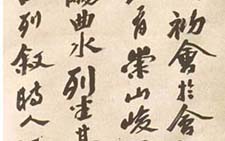 初會於會
有崇山峻
觴曲水列坐其
列敘時人